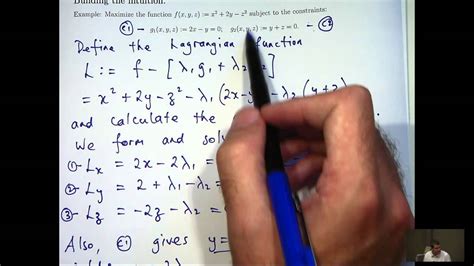 Building the intuition.
Example: Maximize the function f(x, y, z) := x² + 2y − z² subject to the constraints:
C1 – g₁(x, y, z) := 2x − y = 0; g₂(x, y, z) := y + z = 0. – C2
Define the Lagrangian function
L := f − [λ₁g₁ + λ₂
= x² + 2y − z² − λ₁(2x−y) − λ₂(y+z)
and calculate the
We form and sol
①- Lx = 2x − 2λ₁ =
②- Ly = 2 + λ₁ − λ₂ =
③- Lz = −2z − λ₂ =
Also, C1 gives y =